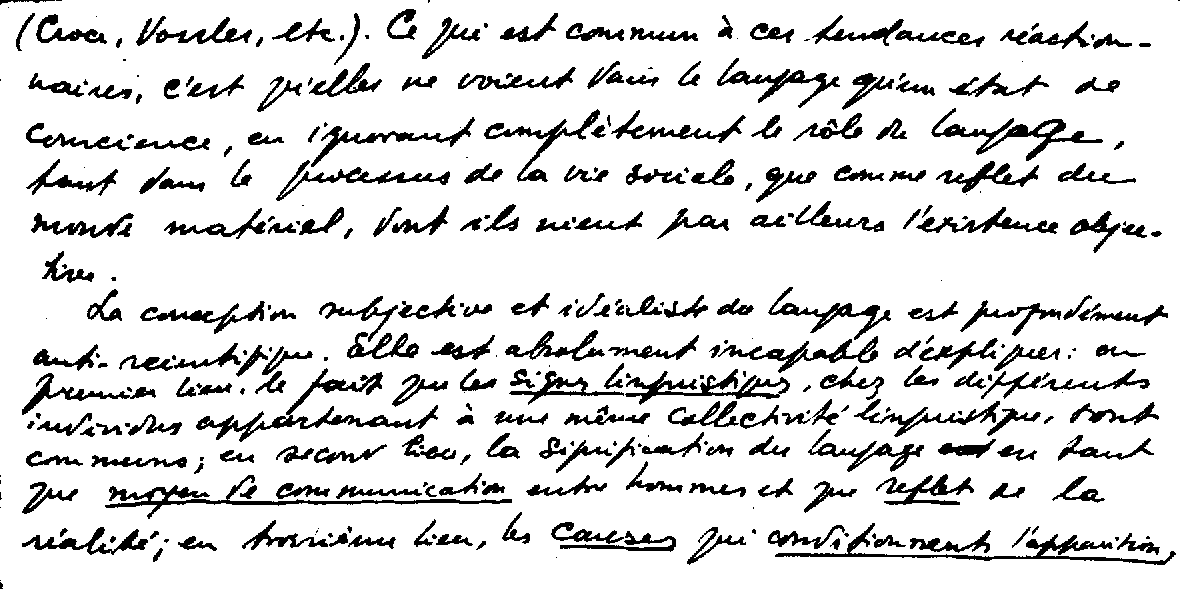 (Croce, Vossler, etc.). Ce qui est commun à ces tendances réaction-
naires, c'est qu'elles ne voient dans le langage qu'un état de
conscience, en ignorant complètement le rôle du langage,
tant dans le processus de la vie sociale, que comme reflet du
monde matériel, dont ils nient par ailleurs l'existence objec-
tive.
La conception subjective et idéaliste du langage est profondément
anti-scientifique. Elle est absolument incapable d'expliquer: en
premier lieu, le fait que les signes linguistiques, chez les différents
individus appartenant à une même collectivité linguistique, sont
communs; en second lieu, la signification du langage en tant
que moyen de communication entre hommes et que reflet de la
réalité; en troisième lieu, les causes qui conditionnent l'apparition,